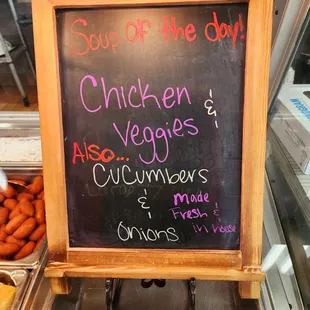 Soup of the day!
Chicken
&
Veggies
Also...
Cucumbers
&
Onions
made
Fresh &
in house